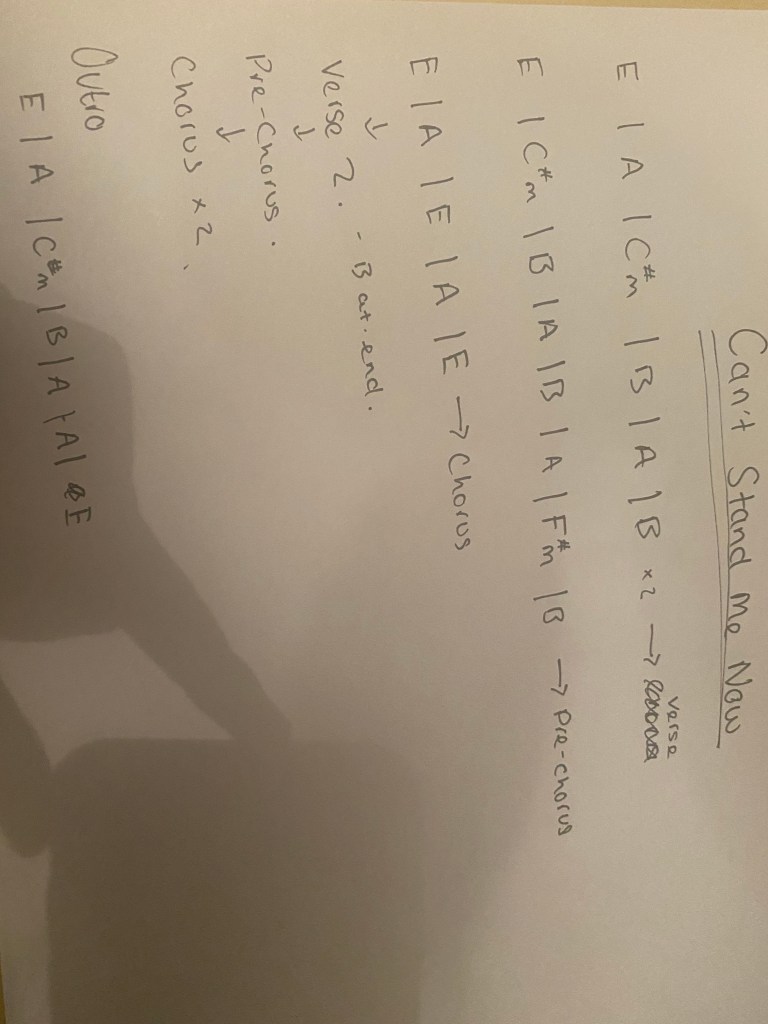 Can't Stand Me Now
E | A | C#m | B | A | B x2 → verse
E | C#m | B | A | B | A | F#m | B → Pre-chorus
E | A | E | A | E → Chorus
↓
Verse 2. - B at. end.
↓
Pre-Chorus.
↓
Chorus x2.
Outro
E | A | C#m | B | A | A | E